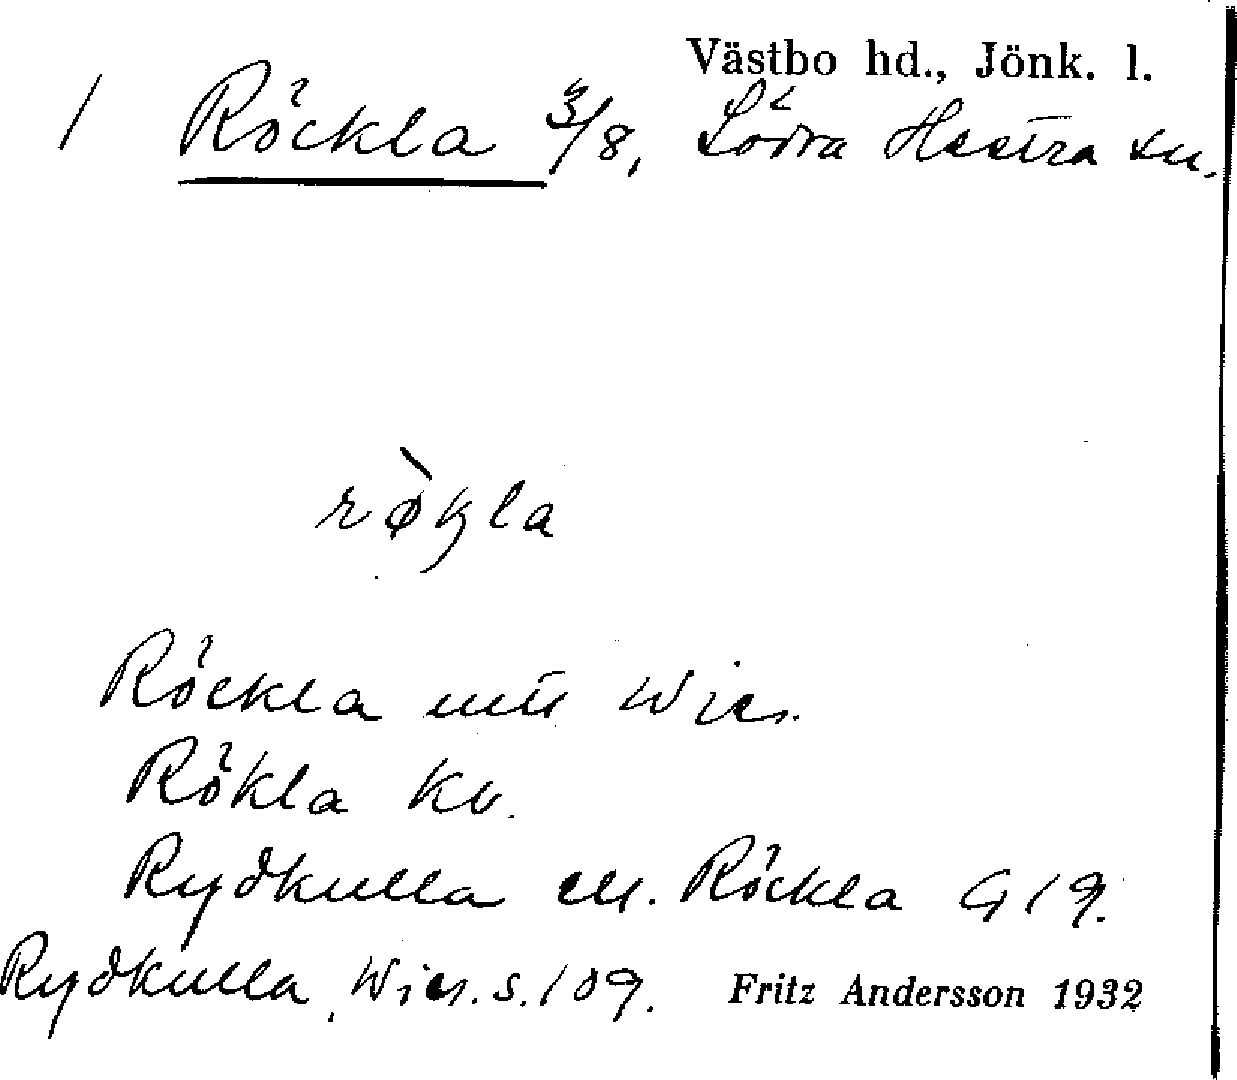 Västbo hd., Jönk. l.
1 Röckla 3/8, Södra Hestra sn.
rø̀kla
Röckla mtl Wies.
Rökla Kv.
Rydkulla ell. Röckla G 19.
Rydkulla, Wies. s. 109. Fritz Andersson 1932